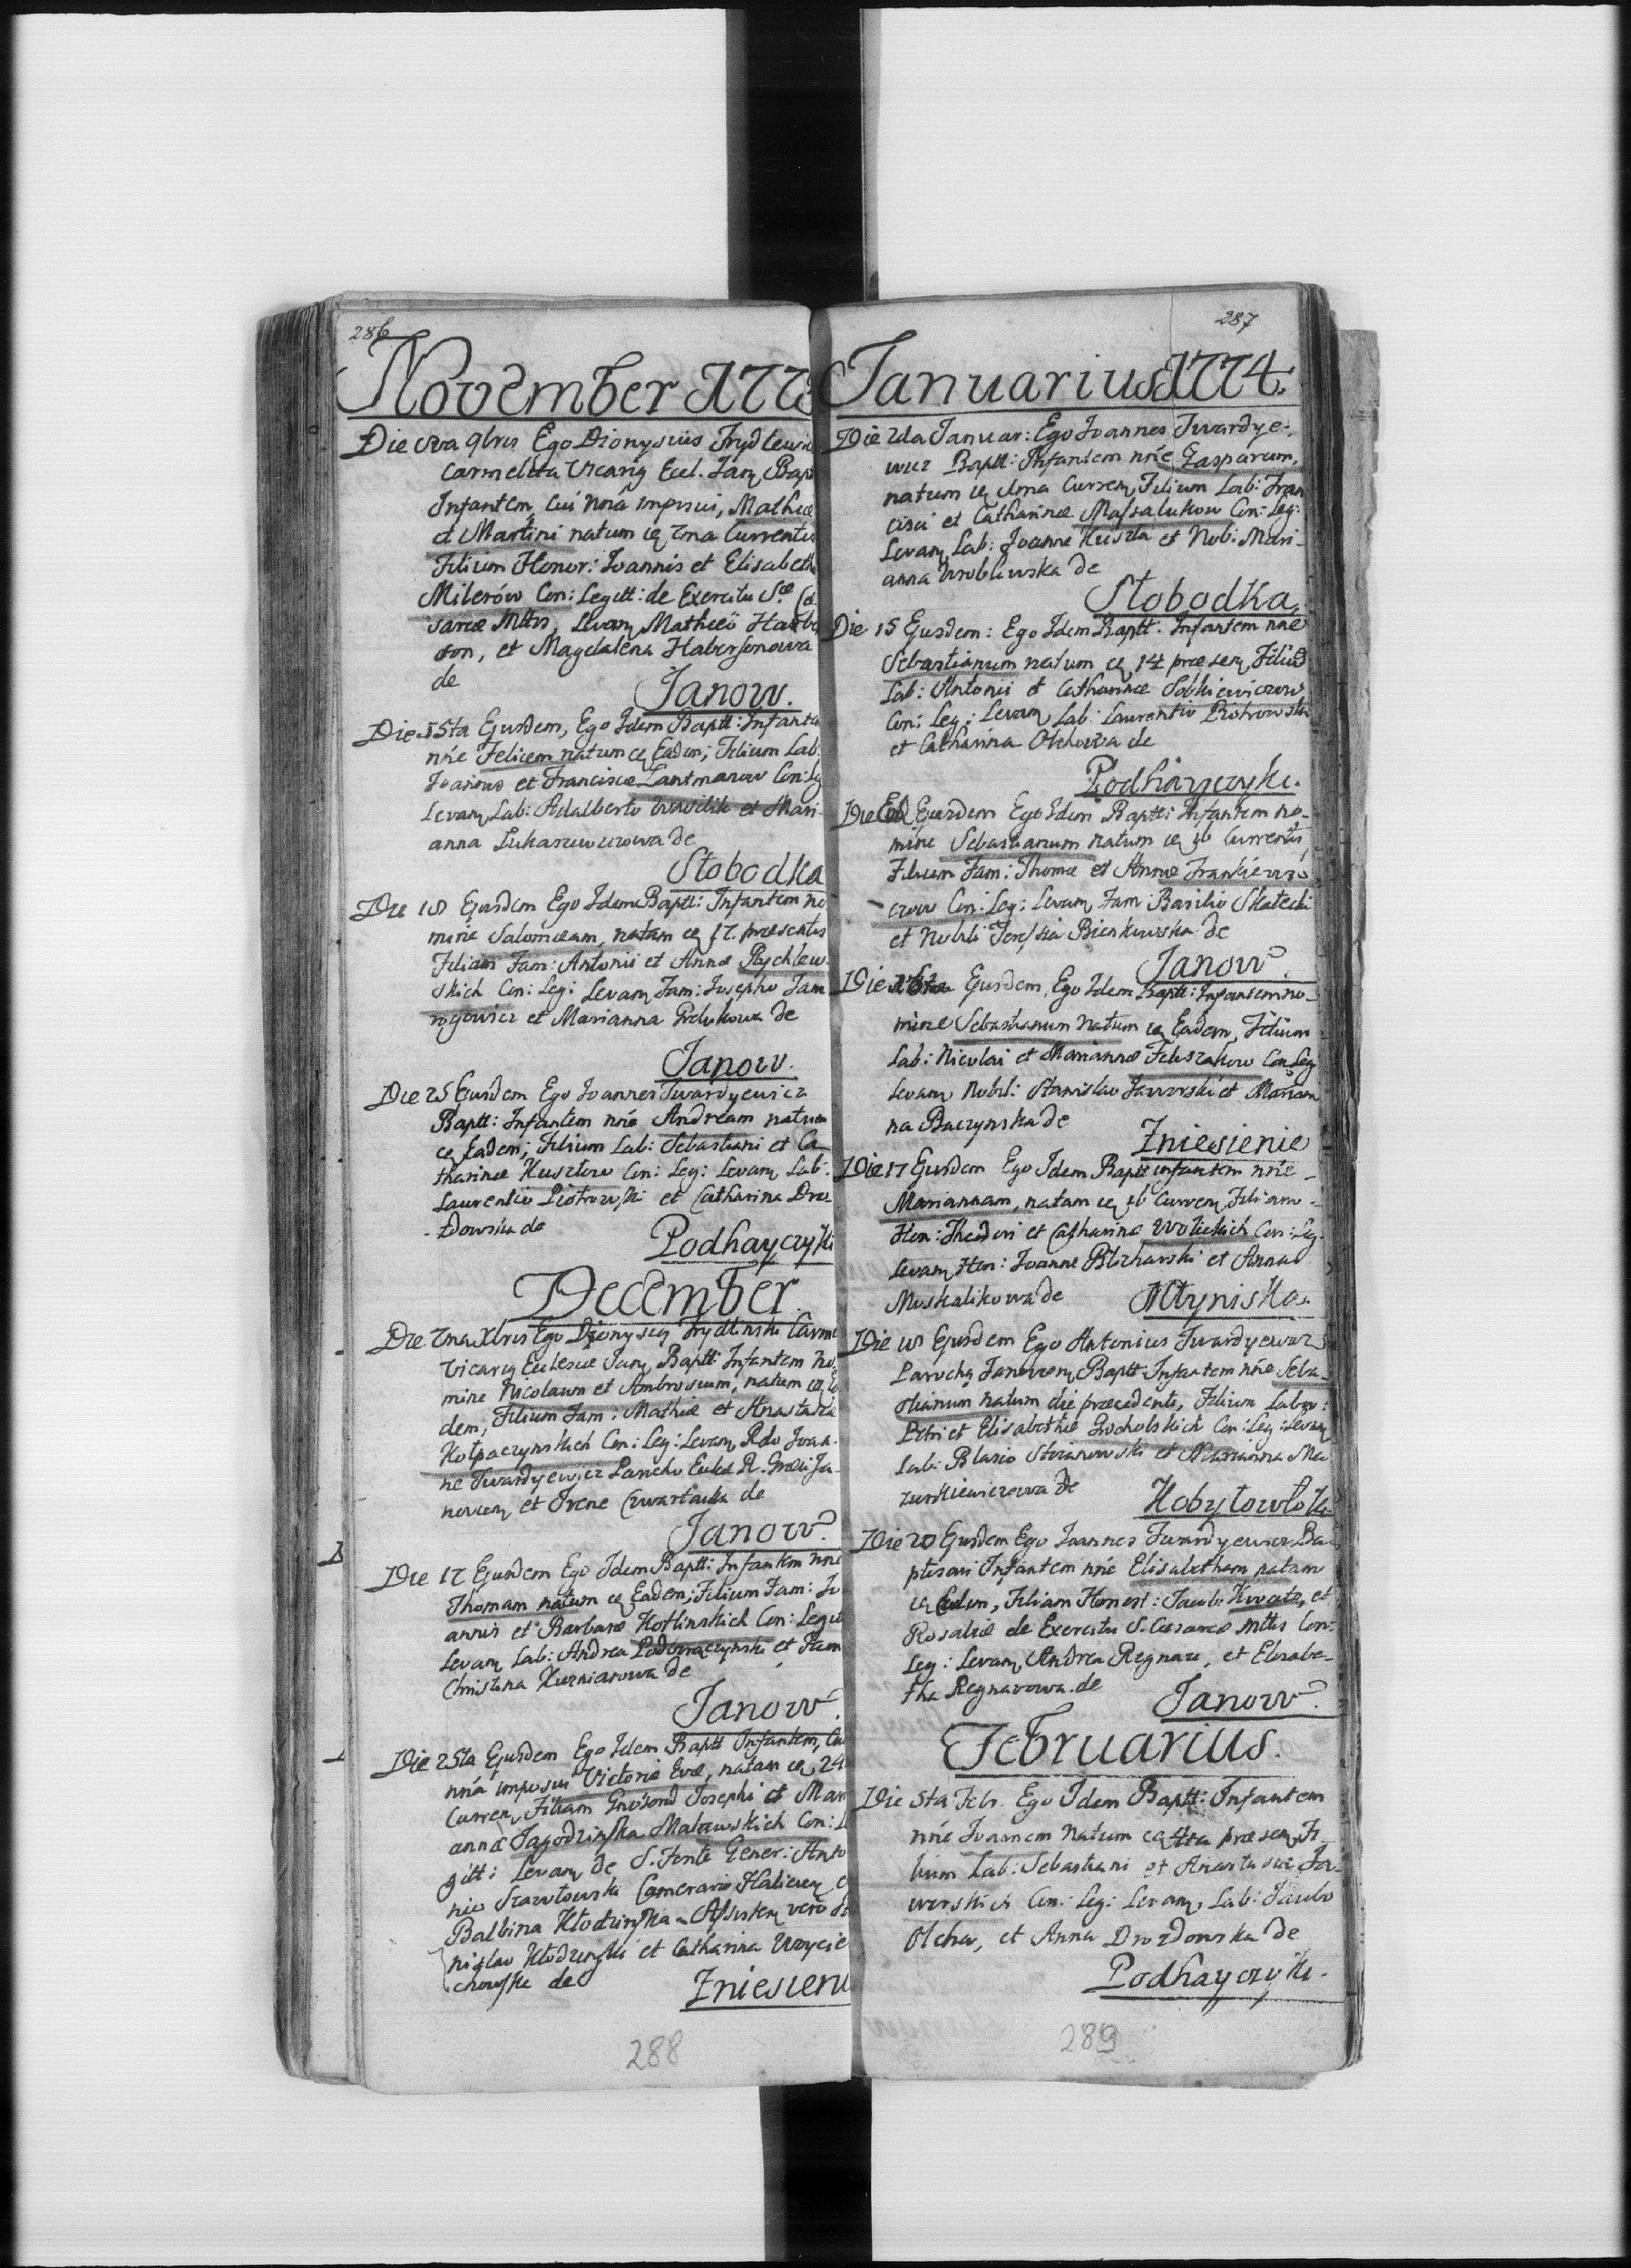 286
November 1773
Die 8va 9bris Ego Dionysius
Carmelita Vicariq Eccl. Janq Bapt
Infantem, Cui noia imposui, Mathiæ
et Martini natum eq 7ma Currentis
Filium Honor: Joannis et Elisabeth
Milerów Con: Legitt: de Exercitu S:æ Cæ
sareæ Mttis, Levanq Mathieo
et Magdalena Habersonowa
de
Janow.
Die 15ta Ejusdem, Ego Idem Baptt: Infante
nne Felicem natum eq Eadem; Filium Lab:
Joannis et Franciscæ Lantmanow Con: Lg
Levanq Lab: Adalberto et Mari-
anna de
Słobodka
Die 18 Ejusdem Ego Idem Baptt: Infantem no
mine Salomeam, natam eq 17. præsentis
Filiam Fam: Antonii et Annæ Rychlew
skich Con: Leg: Levanq Fam: Josepho Jam
rogowicz et Marianna de
Janow.
Die 25 Ejusdem Ego Joannes Twardyewicz
Baptt: Infantem nne Andream natum
eq Eadem; Filium Lab: Sebastiani et Ca
tharinæ Kusztow Con: Leg: Levanq Lab:
Laurentio Piotrowski et Catharina Dro-
-zdowska de
Podhayczyki
December.
Die 7ma Xbris Ego Dionysiq Carme
Vicariq Ecclesiæ Janq Baptt: Infantem no
mine Nicolaum et Ambrosium, natum eq Ea
dem, Filium Fam: Mathiæ et Anastasiæ
Kołpaczynskich Con: Leg: Levanq Rdo Joan-
ne Twardyewicz Parocho Eccles R. Græci Ja-
novienq et Irene Czwartacka de
Janow.
Die 17 Ejusdem Ego Idem Baptt: Infantem nne
Thomam natum eq Eadem; Filium Fam: Jo
annis et Barbaræ Kotlinskich Con: Legitt
Levanq Lab: Andrea et Fam
Christina Kuzniarowa de
Janow.
Die 25ta Ejusdem Ego Idem Baptt Infantem, Cui
nna imposui Victoriæ Evæ, natam eq 24
Currenq, Filiam Gnrosorum Josephi et Mari
annæ Jagodzinska Malewskich Con: Le
gitt: Levanq de S. Fonte Gener: Anto
nio Camerario Haliciens e
Balbina Kłodzinska Assistenq vero Sta
nislao Kłodzinski et Catharina
de
Zniesieni
288
287
Januarius 1774.
Die 2da Januar: Ego Joannes Twardye-
wicz Baptt: Infantem nne Gasparum,
natum eq 1ma Currenq Filium Lab: Fran
cisci et Catharinæ Massalukow Con: Leg:
Levanq Lab: Joanne Kuszta et Nob: Mari-
anna Wroblewska de
Słobodka.
Die 15 Ejusdem: Ego Idem Baptt. Infantem nne
Sebastianum natum eq 14 præsenq Filiu
Lab: Antonii et Catharinæ
Con: Leg: Levanq Lab: Laurentio Piotrowski
et Catharina Olchowa de
Podhayczyki.
Die Ead Ejusdem Ego Idem Baptt: Infantem no-
mine Sebastianum natum eq Currentis,
Filium Fam: Thomæ et Annæ Frankiewi-
czow Con: Leg: Levanq Fam: Basilio
et Nobili Teressia Bienkowska de
Janow.
Die Ejusdem, Ego Idem Baptt: Infantem no-
mine Sebastianum natum eq Eadem, Filium
Lab: Nicolai et Mariannæ Feliszakow Con Leg
Levanq Nobil: Stanislao Jaworski et Marian
na Baczynska de
Zniesienie
Die 17 Ejusdem Ego Idem Baptt infantem nne
Mariannam, natam eq Currenq Filiam
Hon: Theodori et Catharinæ Wolickich Con: Leg.
Levanq Hon: Joanne et Anna
Moskalikowa de Młyniska.
Die 18 Ejusdem Ego Antonius Twardyewicz
Parochq Janovienq Baptt: Infantem nne Seba-
stianum natum die præcedente, Filium Labor:
Petri et Elisabethæ Grocholskich Con: Leg: Levanq
Lab: Blasio et Marianna Ma
zurkiewiczowa de Kobyłowłoki
Die 20 Ejusdem Ego Joannes Twardyewicz Ba-
ptisavi Infantem nne Elisabetham natam
eq Eadem, Filiam Honest: Jacobi et
Rosaliæ de Exercitu S. Cæsareæ Mttis Con:
Leg: Levanq Andrea Regnar, et Elisabe-
tha Regnarowa de Janow.
Februarius.
Die 5ta Febr. Ego Idem Baptt: Infantem
nne Joannem natum eq 4ta præsenq Fi-
lium Lab: Sebastiani et Anastasiæ Ja-
worskich Con: Leg: Levanq Lab: Jacobo
Olcha, et Anna Drozdowska de
Podhayczyki.
289